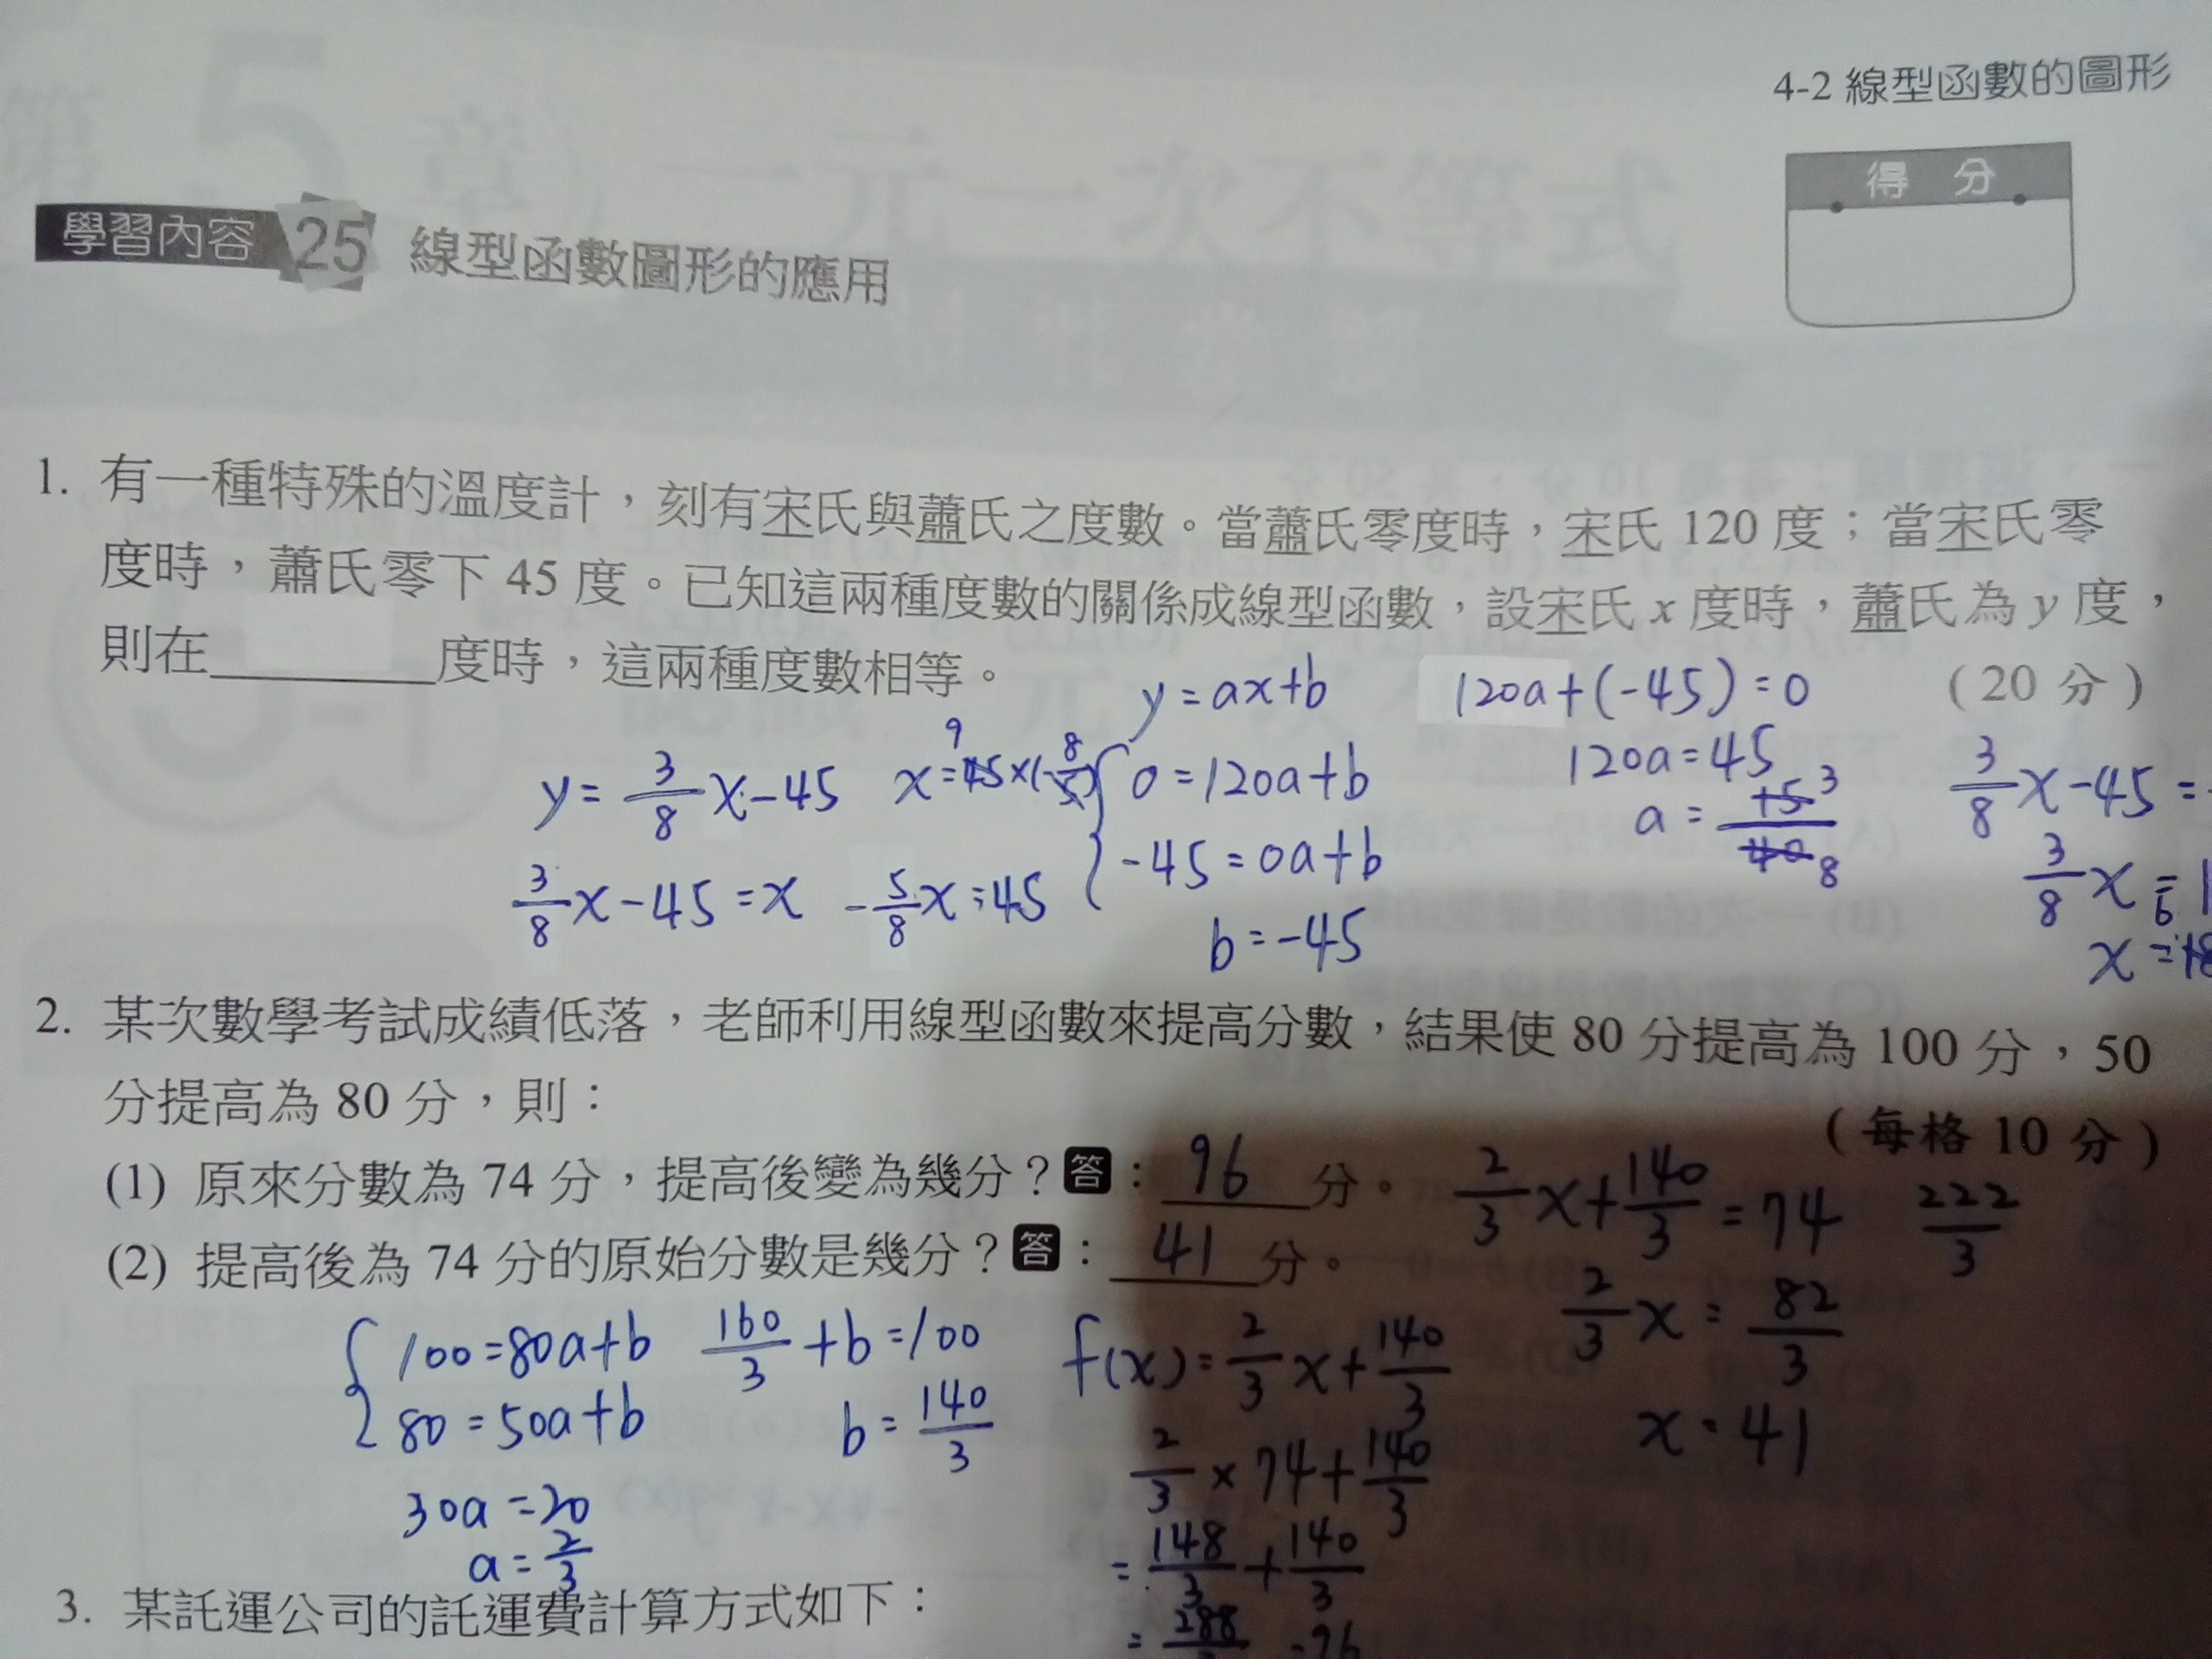 4-2 線型函數的圖形
得 分
學習內容 25 線型函數圖形的應用
1. 有一種特殊的溫度計，刻有宋氏與蕭氏之度數。當蕭氏零度時，宋氏 120 度；當宋氏零
度時，蕭氏零下 45 度。已知這兩種度數的關係成線型函數，設宋氏 x 度時，蕭氏為 y 度，
則在________度時，這兩種度數相等。
(20 分)
y=ax+b
120a+(-45)=0
0=120a+b
120a=45
-45=0a+b
a=15/40 3/8
b=-45
y=3/8x-45
x=45×(-8/5) 9
3/8x-45=x
-5/8x=45
3/8x-45=
3/8x=
x=
2. 某次數學考試成績低落，老師利用線型函數來提高分數，結果使 80 分提高為 100 分，50
分提高為 80 分，則：
(每格 10 分)
(1) 原來分數為 74 分，提高後變為幾分？答：96分。
(2) 提高後為 74 分的原始分數是幾分？答：41分。
2/3x+140/3=74
222/3
2/3x=82/3
x=41
100=80a+b
80=50a+b
30a=20
a=2/3
160/3+b=100
b=140/3
f(x)=2/3x+140/3
2/3×74+140/3
=148/3+140/3
=288/3=96
3. 某託運公司的託運費計算方式如下：